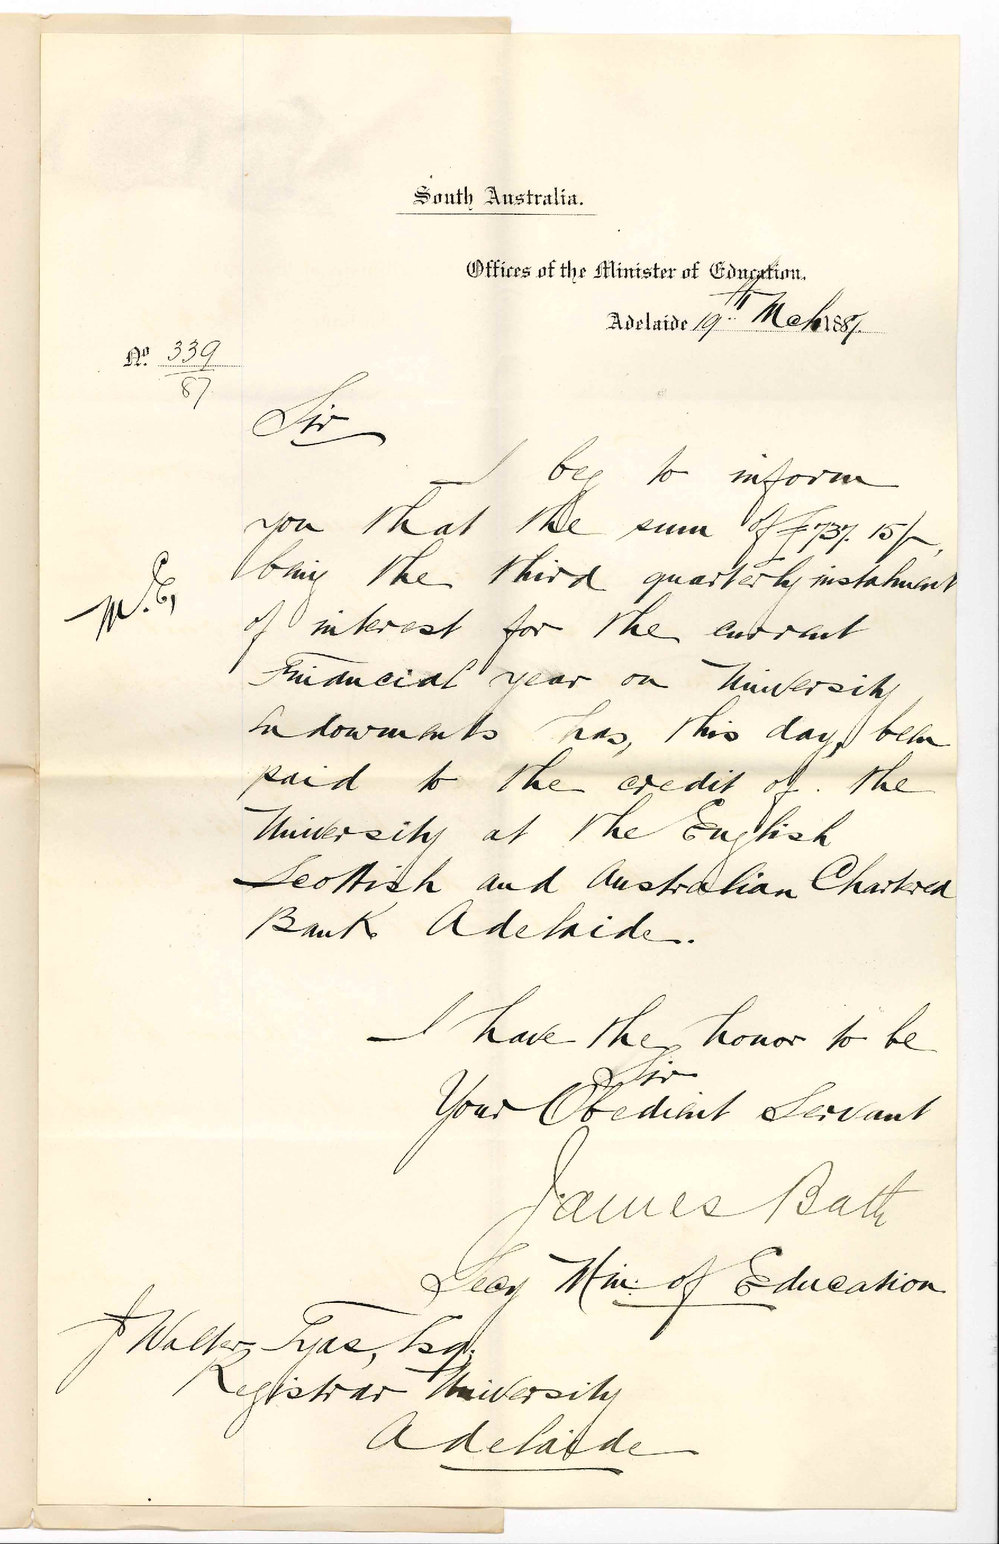 South Australia.
Offices of the Minister of Education.
Adelaide 19th Mch 1887.
No. 339
87
Sir
I beg to inform
you that the sum of £737. 15/-,
being the third quarterly instalment
of interest for the current
Financial year on University
Endowments has, this day, been
paid to the credit of the
University at the English
Scottish and Australian Chartered
Bank Adelaide.
M.E,
I have the honor to be
Sir
Your Obedient Servant
James Bath
Secy Min: of Education
J Walter Tyas, Esq.
Registrar University
Adelaide